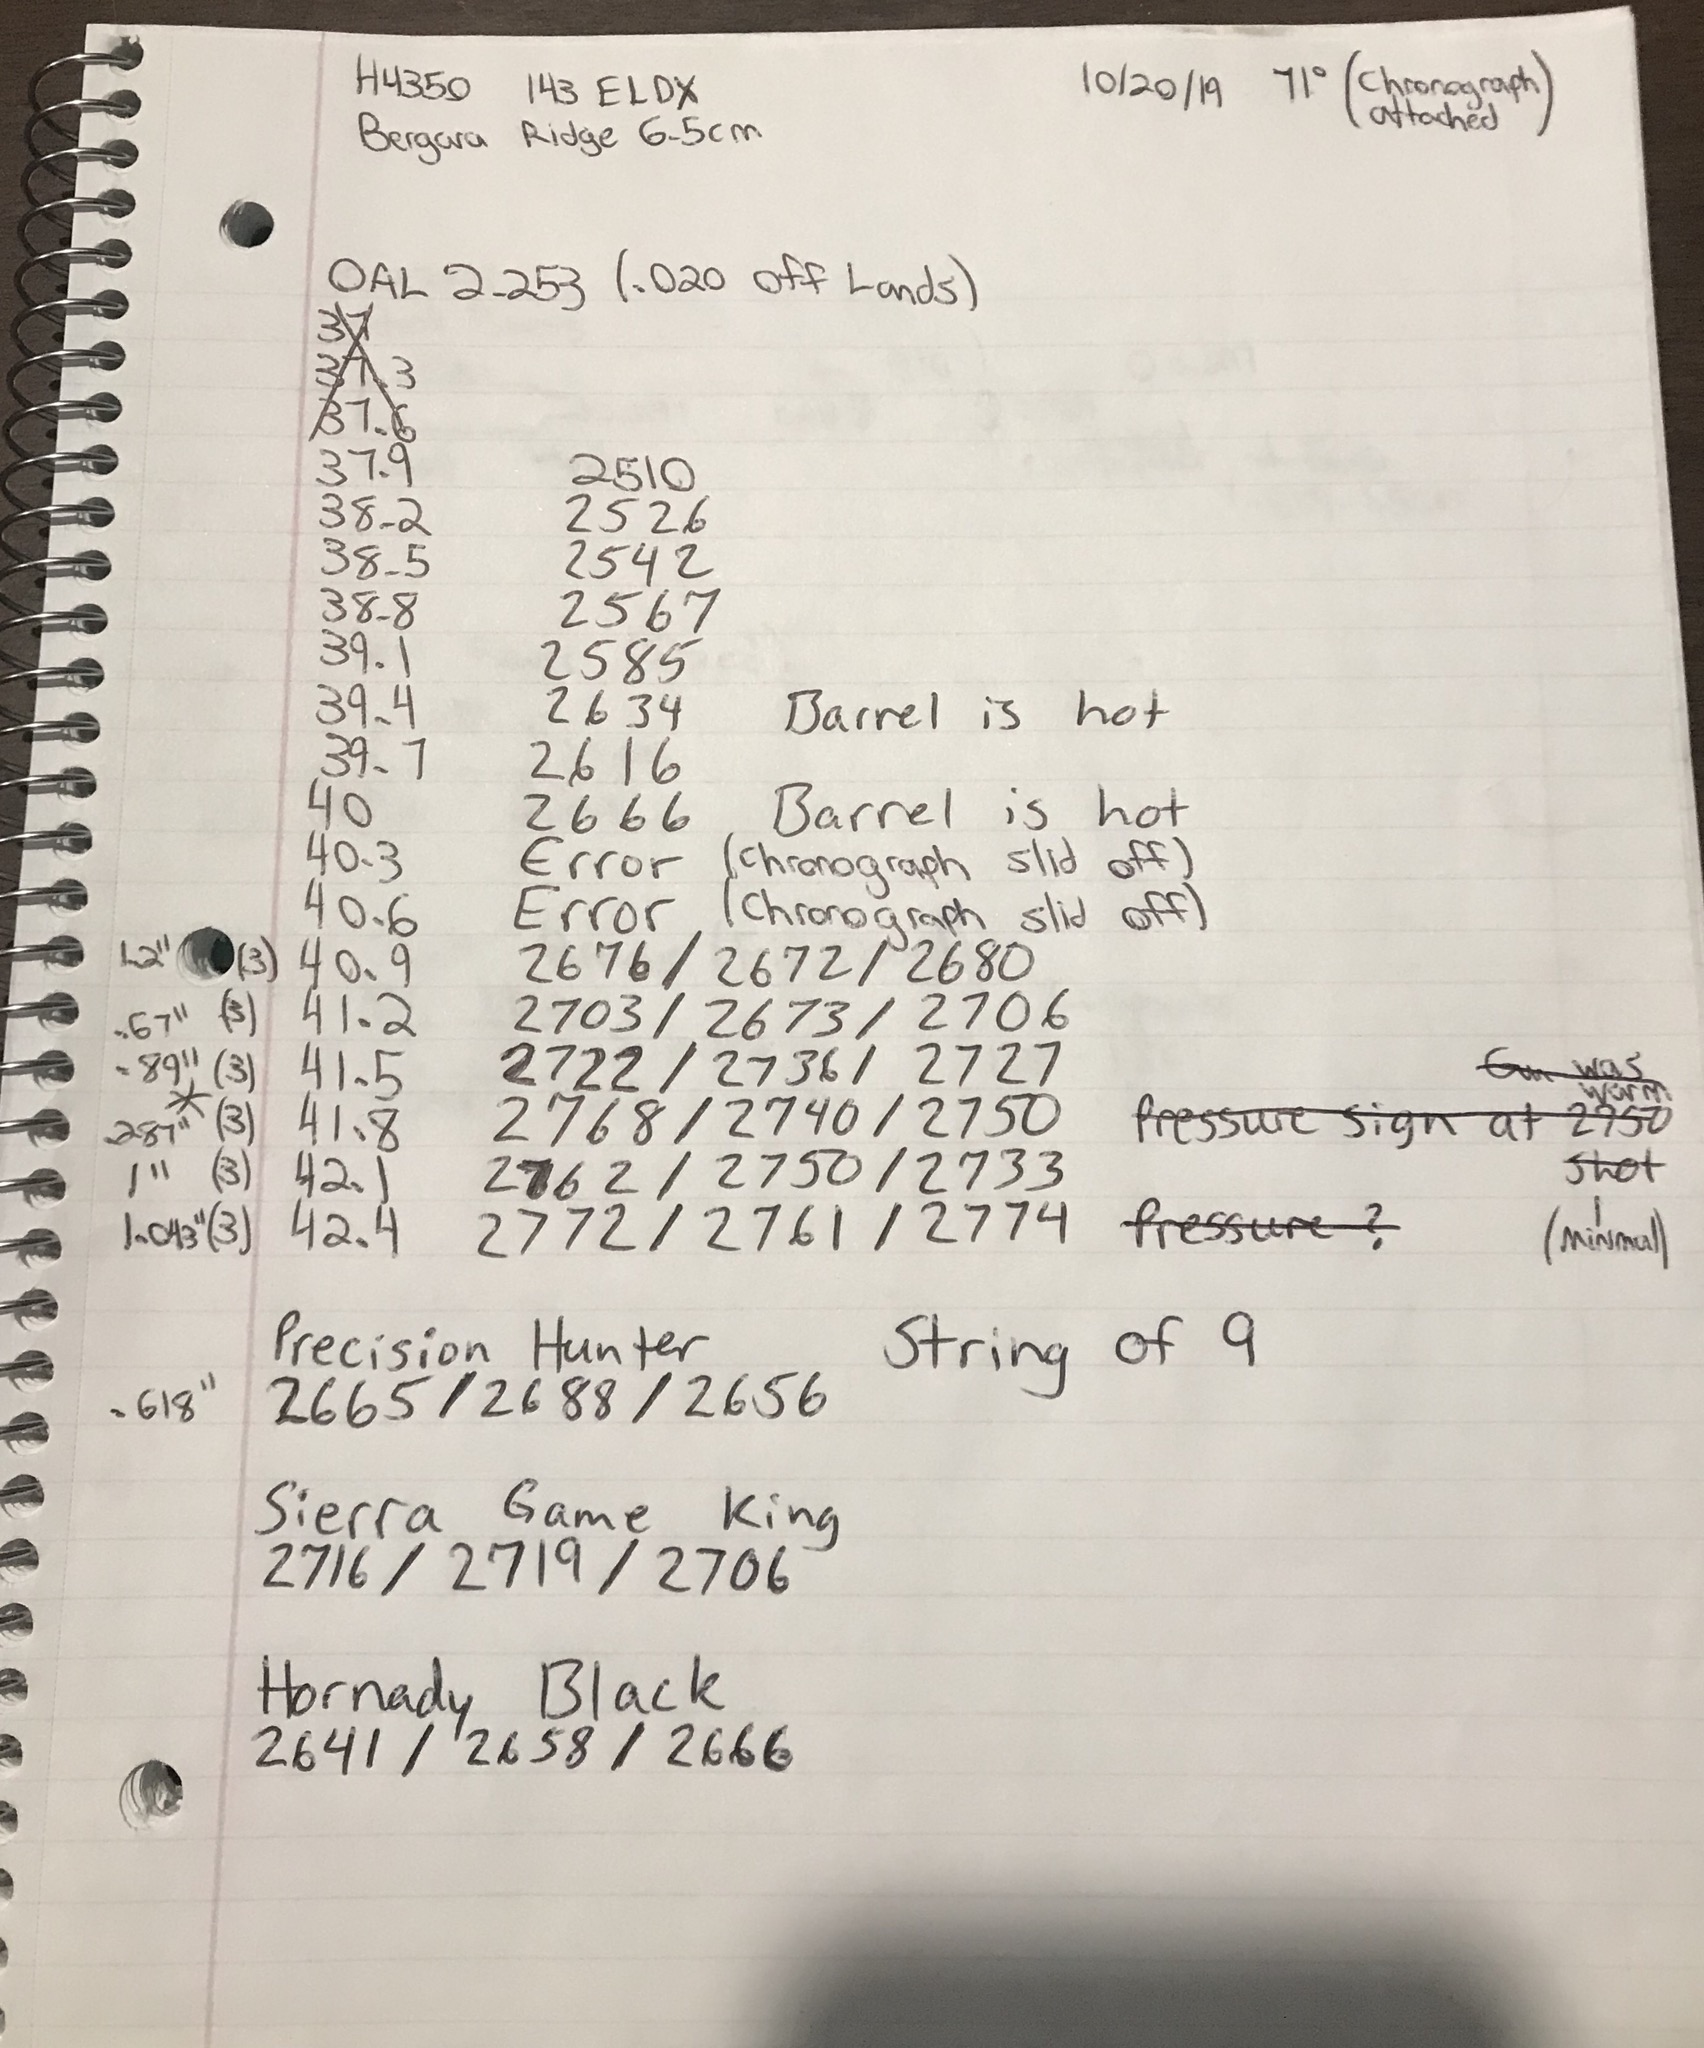 H4350 143 ELDX 10/20/19 71° (Chronograph attached)
Bergara Ridge 6.5cm
OAL 2.253 (.020 off Lands)
37
37.3
37.6
37.9 2510
38.2 2526
38.5 2542
38.8 2567
39.1 2585
39.4 2634 Barrel is hot
39.7 2616
40 2666 Barrel is hot
40.3 Error (Chronograph slid off)
40.6 Error (Chronograph slid off)
1.2" (3) 40.9 2676/2672/2680
.67" (3) 41.2 2703/2673/2706
.89" (3) 41.5 2722/2736/2727 Gun was warm
.287"* (3) 41.8 2768/2740/2750 Pressure sign at 2750 shot
1" (3) 42.1 2762/2750/2733
1.043" (3) 42.4 2772/2761/2774 Pressure? (minimal)
Precision Hunter String of 9
.618" 2665/2688/2656
Sierra Game King
2716/2719/2706
Hornady Black
2641/2658/2666